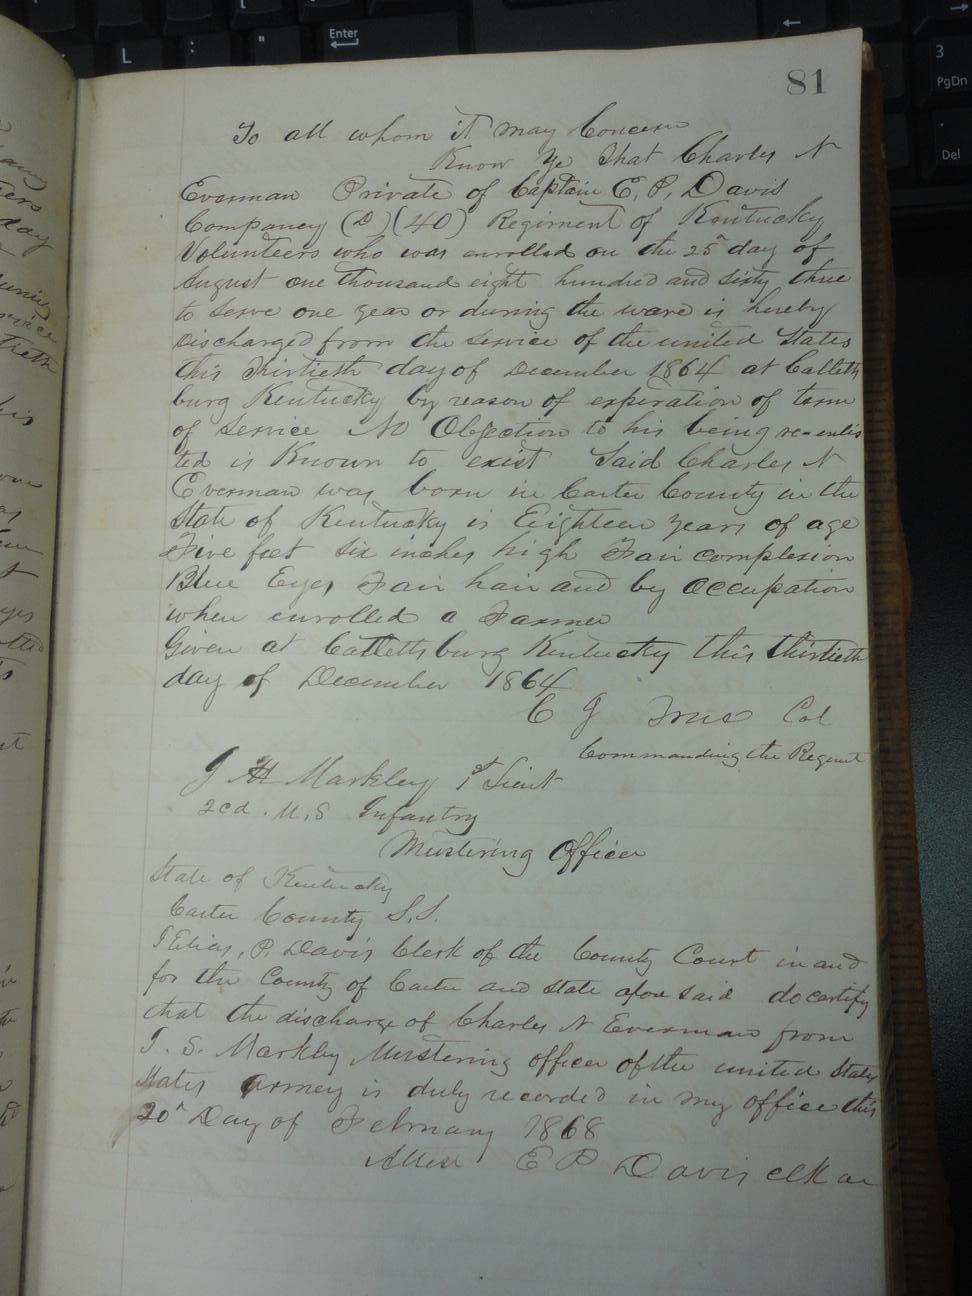 81
To all whom it may Concern
Know Ye That Charles N
Everman Private of Captain E. P. Davis
Compancy (D) (40) Regiment of Kentucky
Volunteers who was enrolled on the 25" day of
August one thousand eight hundred and sixty three
to serve one year or during the ware is hereby
discharged from the service of the united States
this Thirtieth day of December 1864 at Catletts
burg Kentucky by reason of expiration of term
of service No Objection to his being re-enlis
ted is Known to exist Said Charles N
Everman was born in Carter County in the
State of Kentucky is Eighteen years of age
Five feet six inches high Fair complexion
Blue Eyes Fair hair and by occupation
when enrolled a Farmer
Given at Catlettsburg Kentucky this thirtieth
day of December 1864
C J True Col
Commanding the Regemt
J H Markley 1st Lieut
2cd. U. S Infantry
Mustering Officer
State of Kentucky
Carter County S.S.
I Elias, P. Davis Clerk of the County Court in and
for the County of Carter and State afore said do certify
that the discharge of Charles N Everman from
J. S. Markley Mustering officer of the united States
States armey is duly recorded in my office this
20" Day of February 1868
Attest E P Davis clk
L
:
"
Enter
3
PgDn
Del